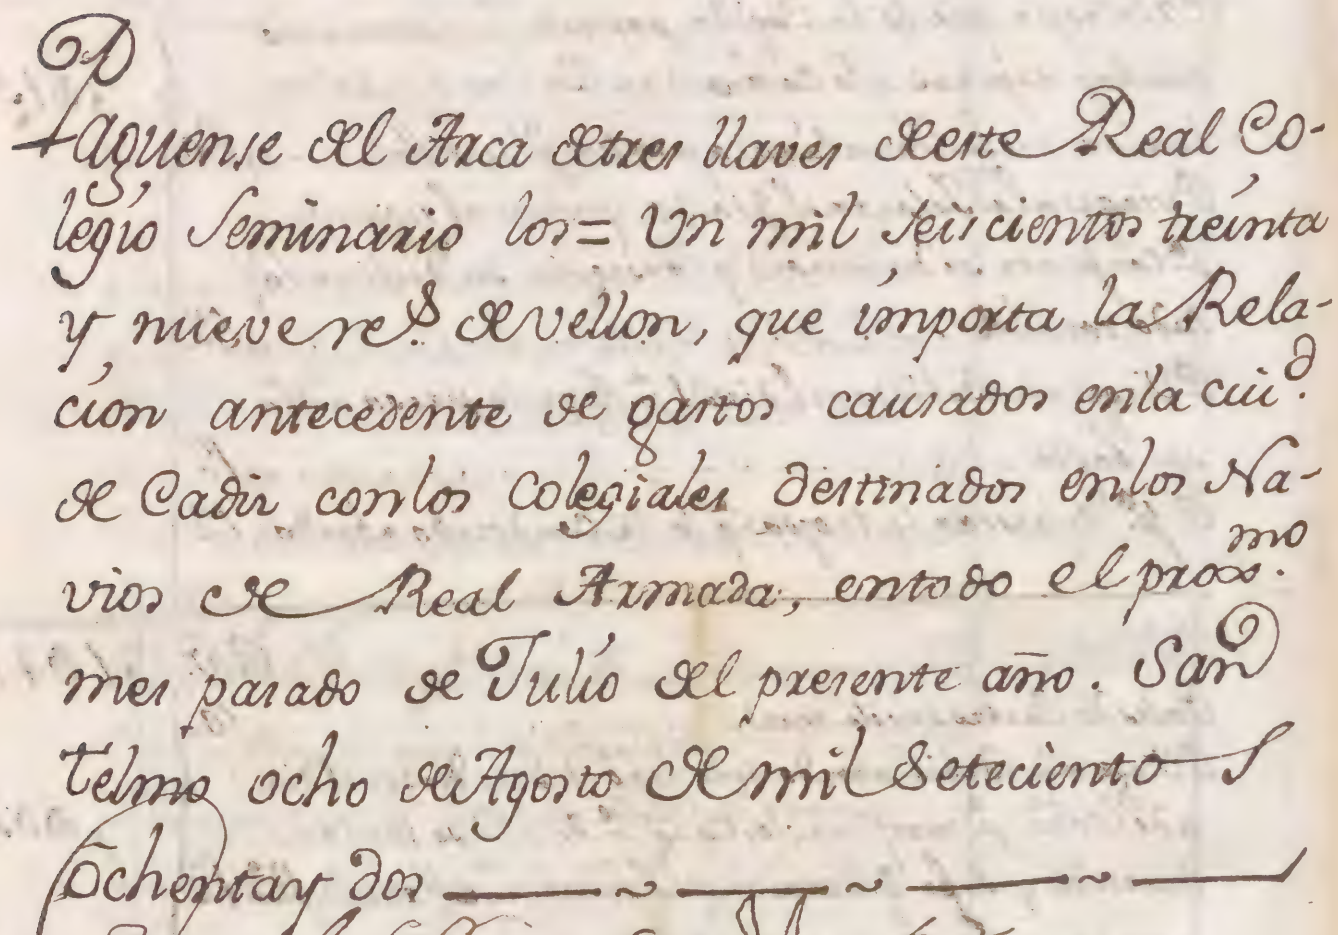 Paguense del Arca de tres llaves de este Real Co-
legio Seminario los = Un mil seiscientos treinta
y nueve re.s de vellon, que importa la Rela-
cion antecedente de gastos causados en la ciu.d
de Cadiz con los Colegiales destinados en los Na-
vios de Real Armada, en todo el prox.mo
mes pasado de Julio del presente año. San
Telmo ocho de Agosto de mil Setecientos
ochenta y dos